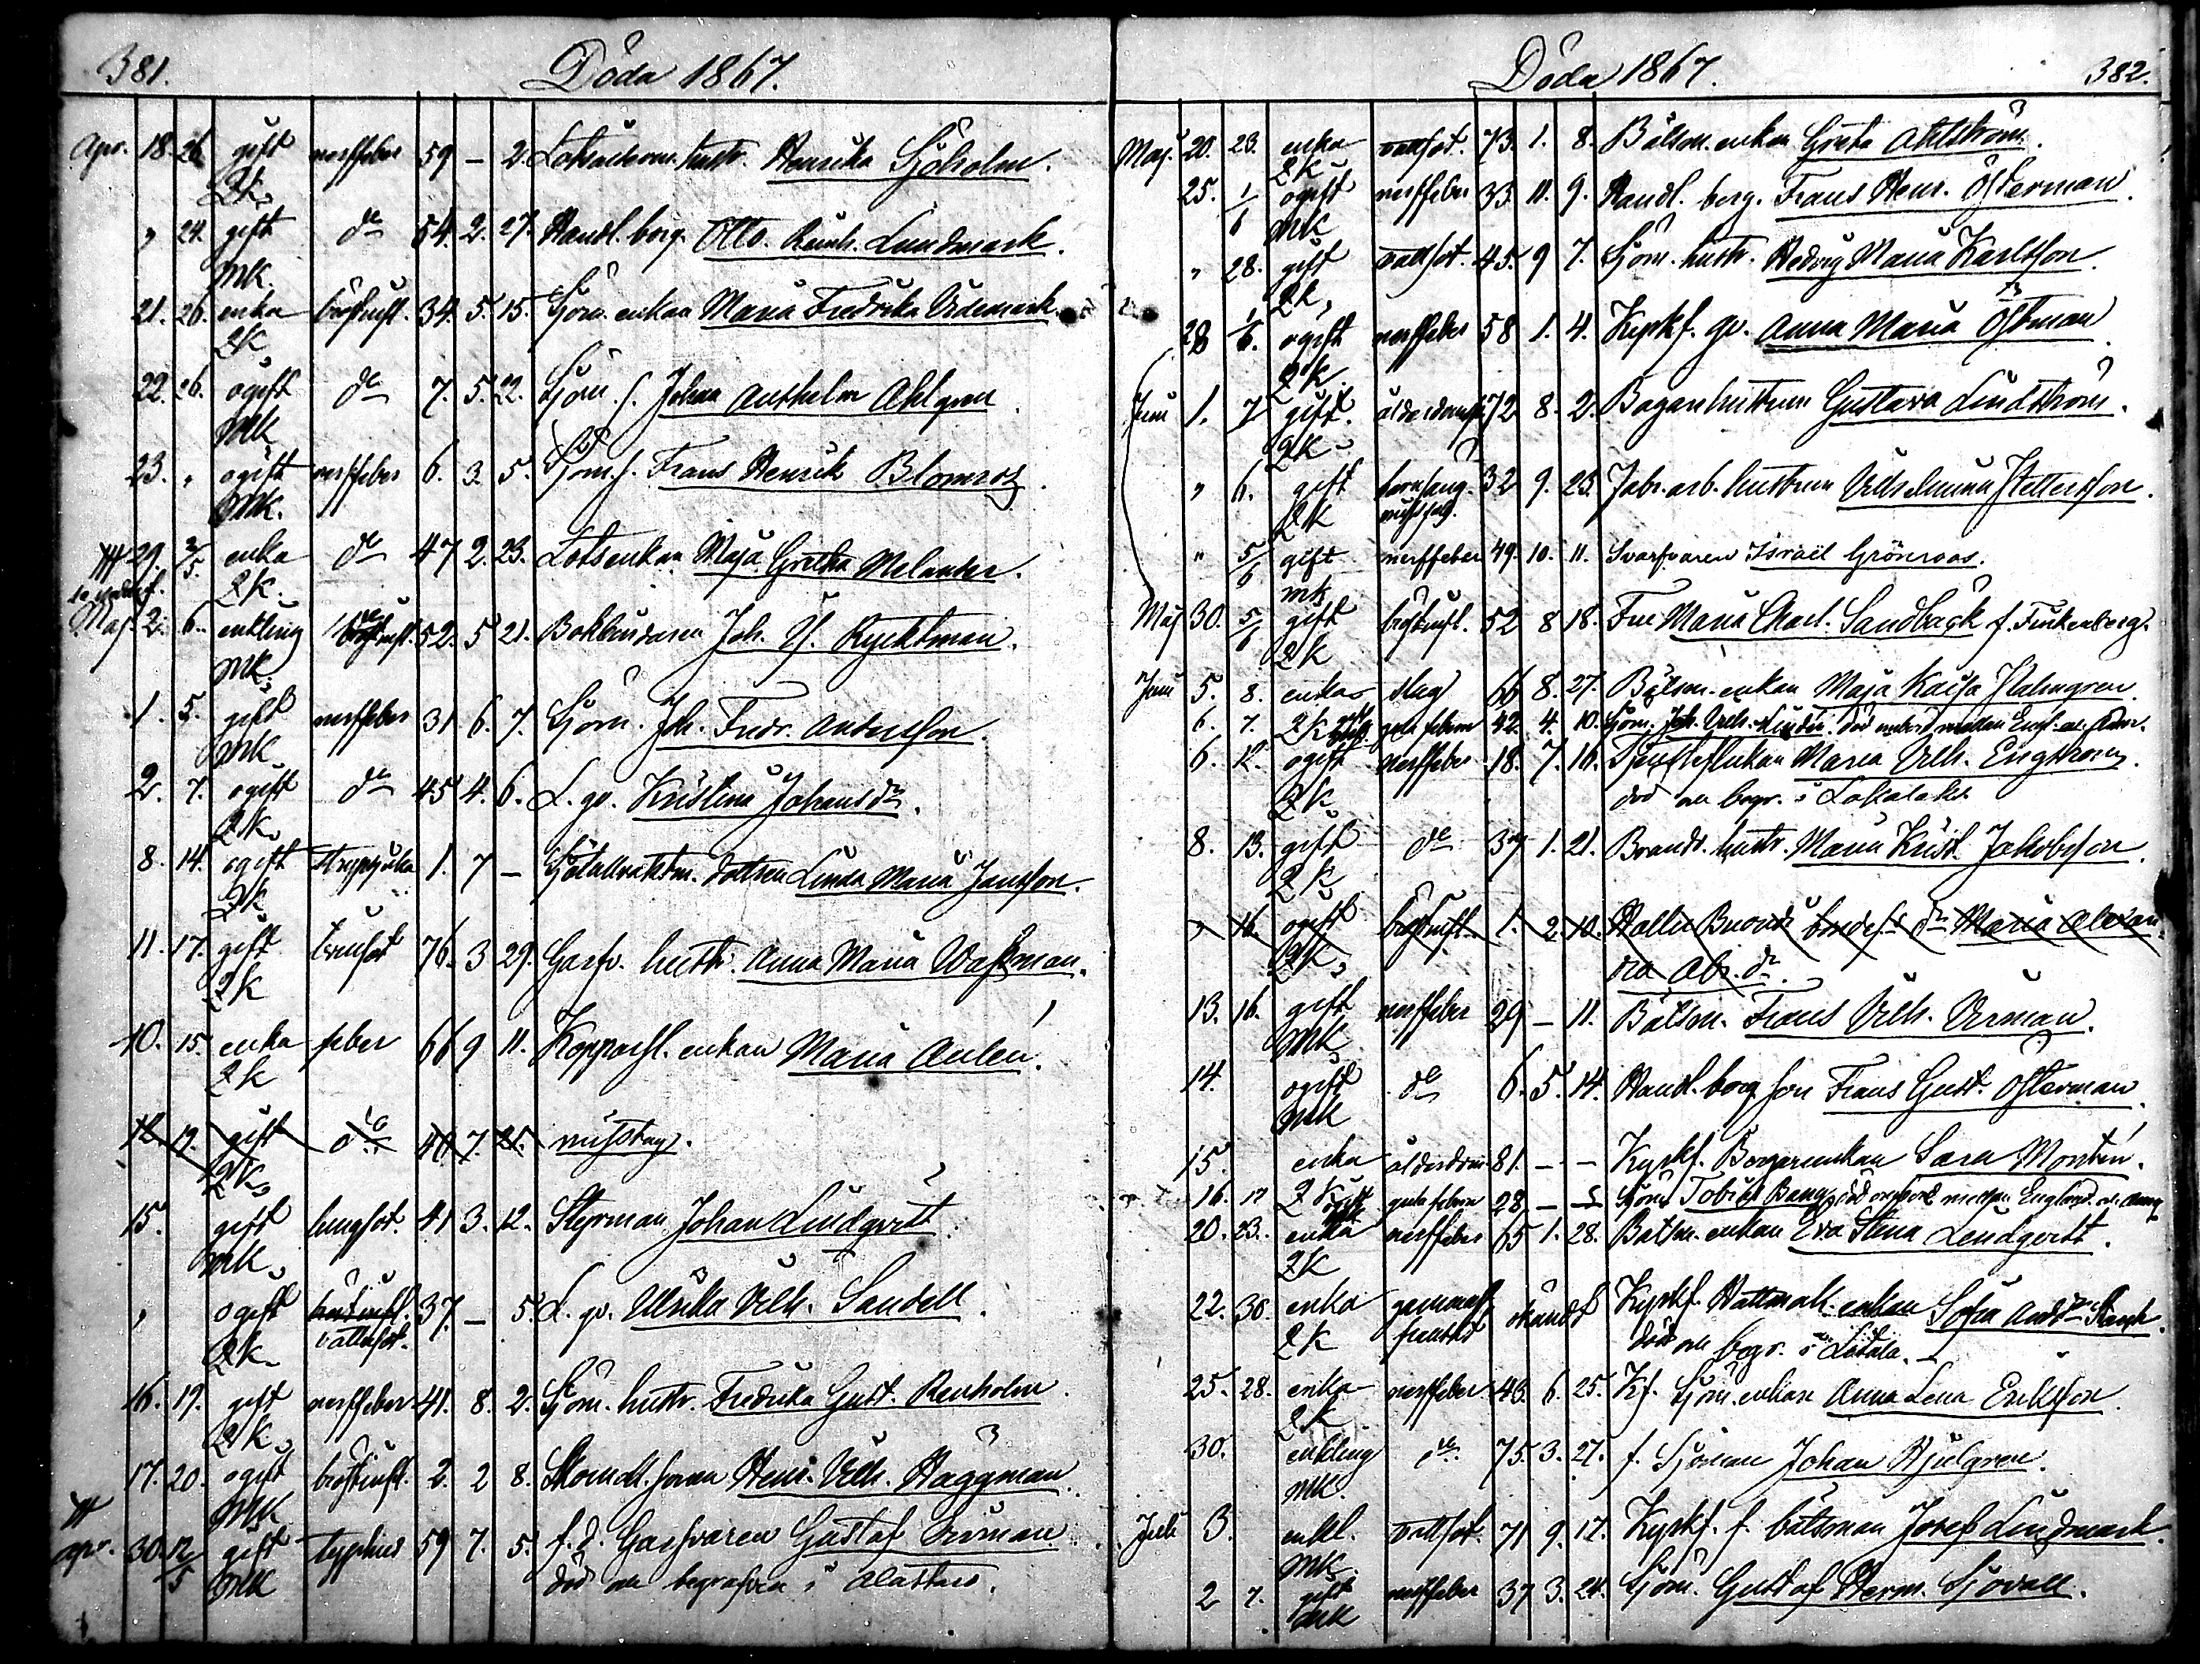 381. Döda 1867.
Apr. 18. 26. gift nerffeber 59 — 2. hustr. Henrika Sjöholm.
Qk.
„ 24. gift do 54. 2. 27. Handl. borg. Otto Reinh. Lundmark.
Mk.
21. 26. enka bröstinfl. 34. 5. 15. Sjöm. enkan Maria Fredrika Widemark.
Qk
22. 26. ogift do 7. 5. 22. Sjöm. s. Johan Anshelm Ahlgren
Mk
23. „ ogift nerffeber 6. 3. 5. Sjöm. s. Frans Henrik Blomros.
Mk.
29. 2/5. enka do 47 2. 23. Lotsenkan Maja Gretha Melander.
Qk.
Maj. 2. 6. enkling bröstinfl. 52. 5 21. Bokbindaren Joh. Rycktman.
Mk.
1. 5. gift nerffeber 31 6. 7. Sjöm. Joh. Fredr. Andersson.
Mk
2. 7. ogift do 45 4. 6. L. qv. Kristina Johansdr.
Qk.
8. 14. ogift strypsjuka 1. 7 — dottren Linda Maria Jansson.
Qk
11. 17. gift 76. 3 29. Garfv. hustr. Anna Maria Wassman.
Qk
10. 15. enka feber 66 9 11. Kopparsl. enkan Maria Aulén.
Qk
12. 19. gift do 40. 7. 21. misstag.
Qk.
15. gift lungsot. 41 3. 12. Styrman Johan Lindqvist.
Mk.
„ ogift bröstinfl. 37. — 5. L. qv. Ulrika Vilh. Sandell.
Qk. vattusot.
16. 19. gift nerffeber 41. 8. 2. Sjöm. hustr. Fredrika Gust. Renholm.
Qk.
17. 20. ogift bröstinfl. 2. 2 8. sonen Henr. Vilh. Häggman.
Mk
apr. 30. 12/5 gift typhus 59 7. 5. f. d. Garfvaren Gustaf
Mk död och begrafven i Alastaro.
Döda 1867. 382.
Maj. 20. 23. enka vattsot. 73. 1. 8. Båtsm. enkan Greta Ahlström.
Qk
25. 1/6 ogift nerffeber 33. 11. 9. Handl. borg. Frans Henr. Österman.
Mk
„ 28. gift vattsot. 45. 9 7. Sjöm. hustr. Hedvig Maria Karlsson.
Qk,
28 1/6. ogift nerffeber 58 1. 4. Kyrkf. qv. Anna Maria Östman
Qk
Juni 1. 7 gift. ålderdomssv. 72 8. 2. Bagarhustrun Gustava Lindström.
Qk
„ 6. gift barnsäng. 32 9. 23. Fabr. arb. hustrun Vilhelmina Pettersson.
Qk
„ 5/6 gift nerffeber 49. 10. 11. Svarfvaren Israël Grönroos.
mk
Maj 30. 5/6 gift bröstinfl. 52 8 18. Fru Maria Charl. Sandbäck f. Finkenberg.
Qk
Juni 5. 8. enka slag 66 8. 27. Båtsm. enkan Maja Kaisa Palmgren.
6. 7. Qk gula febern 42. 4. 10. Sjöm. Joh. Vilh. Lindén. död ombord mellan Engl. och Amer.
6. 12. ogift nerffeber 18. 7. 16. Tjensteflickan Maria Vilh. Engström.
Qk död och begr. i Lokalaks
8. 13. gift do 37 1. 21. Brandv. hustr. Maria Krist. Jakobsson.
Qk
„ 16. ogift bröstinfl. 1. 2. 10. dr Maria Alexan-
Qk, dra Abr. dr.
13. 16. gift nerffeber 29 — 11. Båtsm. Frans Vilh. Urman.
Mk
14. ogift do 6. 5. 14. Handl. borg. son Frans Gust. Österman.
Mk
15. enka ålderdom 81. — — Kyrkf. Borgarenkan Sara Montén.
16. 17 gula febern 28. — 5 Sjöm. Tobias Bang, död ombord mellan England och Amer.
20. 23. enka nerffeber 65 1. 28. Båtsm. enkan Eva Stina Lendqvist.
Qk
22. 30. enka okändt Kyrkf. enkan Sofia Andsdr
Qk död och begr. i Letala.
25. 28. enka nerffeber 46. 6. 25. Kf. Sjöm. enkan Anna Lena Eriksson.
Qk
30. enkling do 75. 3. 27. f. Sjöman Johan Hjulgren.
Mk.
Juli 3. enkl. vattsot. 71 9. 17. Kyrkf. f. båtsman Josef Lindmark.
Mk.
2 7. gift nerffeber 37 3. 24. Sjöm. Gustaf Herm. Sjövall.
Mk